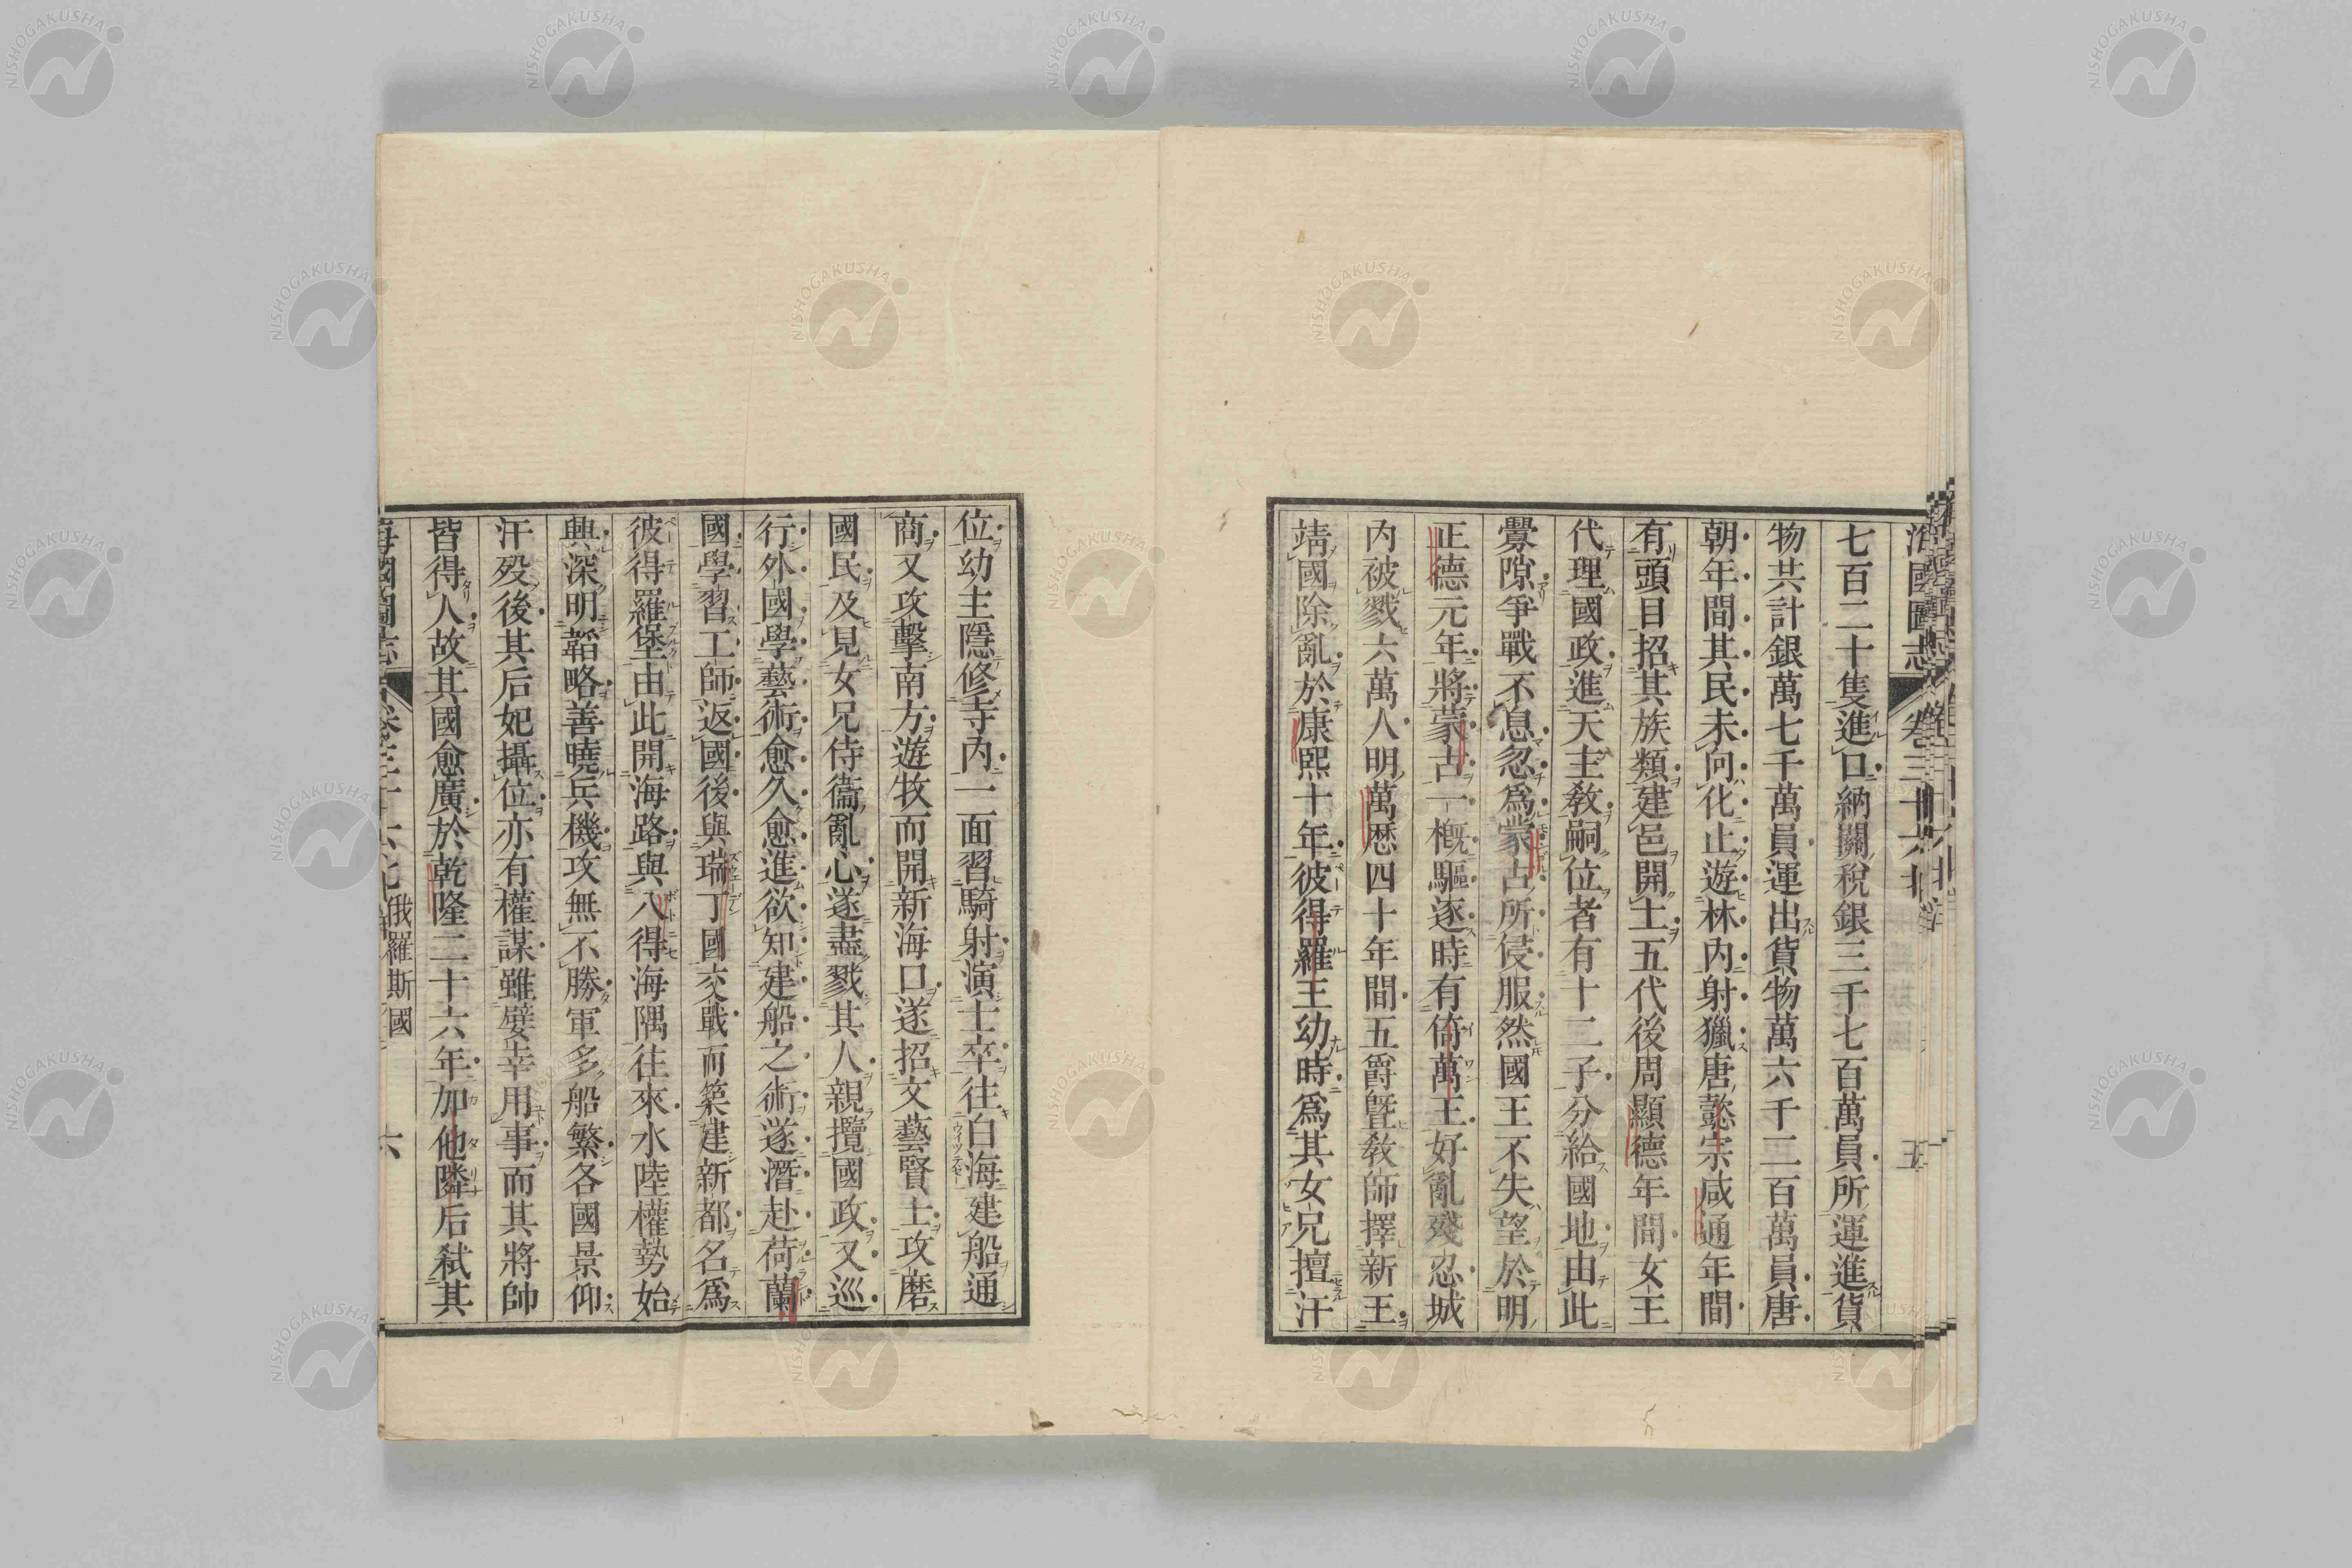 七百二十隻進口納關稅銀三千七百萬員所運進貨
物共計銀萬七千萬員運出貨物萬六千二百萬員唐
朝年間其民未向化止遊林內射獵唐懿宗咸通年間
有頭目招其族類建邑開土五代後周顯德年間女王
代理國政進天主敎嗣位者有十二子分給國地由此
釁隙爭戰不息忽爲蒙古所侵服然國王不失望於明
正德元年將蒙古一概驅逐時有倚萬王好亂殘忍城
內被戮六萬人明萬歷四十年間五爵曁敎師擇新王
靖國除亂於康熙十年彼得羅王幼時爲其女兄擅汗
位幼主隱修寺內一面習騎射演士卒往白海建船通
商又攻擊南方遊牧而開新海口遂招文藝賢士攻磨
國民及見女兄侍衞亂心遂盡戮其人親攬國政又巡
行外國學藝術愈久愈進欲知建船之術遂潛赴荷蘭
國學習工師返國後與瑞丁國交戰而築建新都名爲
彼得羅堡由此開海路與八得海隅往來水陸權勢始
興深明韜略善曉兵機攻無不勝軍多船繁各國景仰
汗歿後其后妃攝位亦有權謀雖嬖幸用事而其將帥
皆得人故其國愈廣於乾隆二十六年加他隣后弑其
海國圖志 卷三十六 俄羅斯國 六
NISHOGAKUSHA